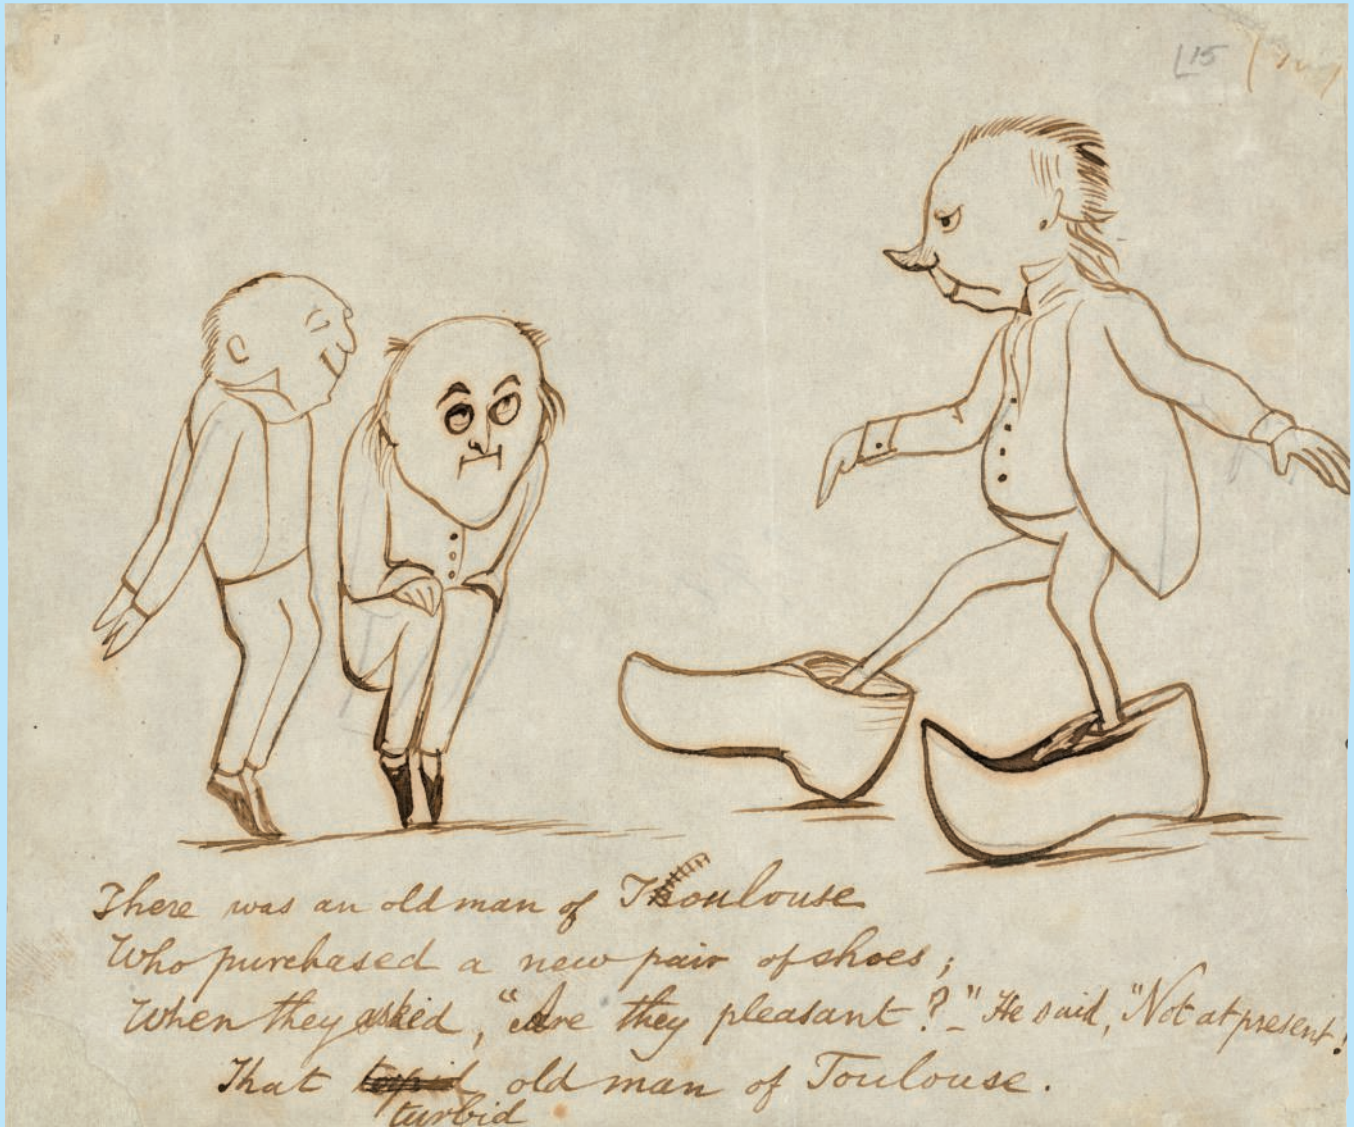 L15
There was an old man of Toulouse
Who purchased a new pair of shoes;
When they asked, "Are they pleasant?" – He said, "Not at present!
That turbid old man of Toulouse.